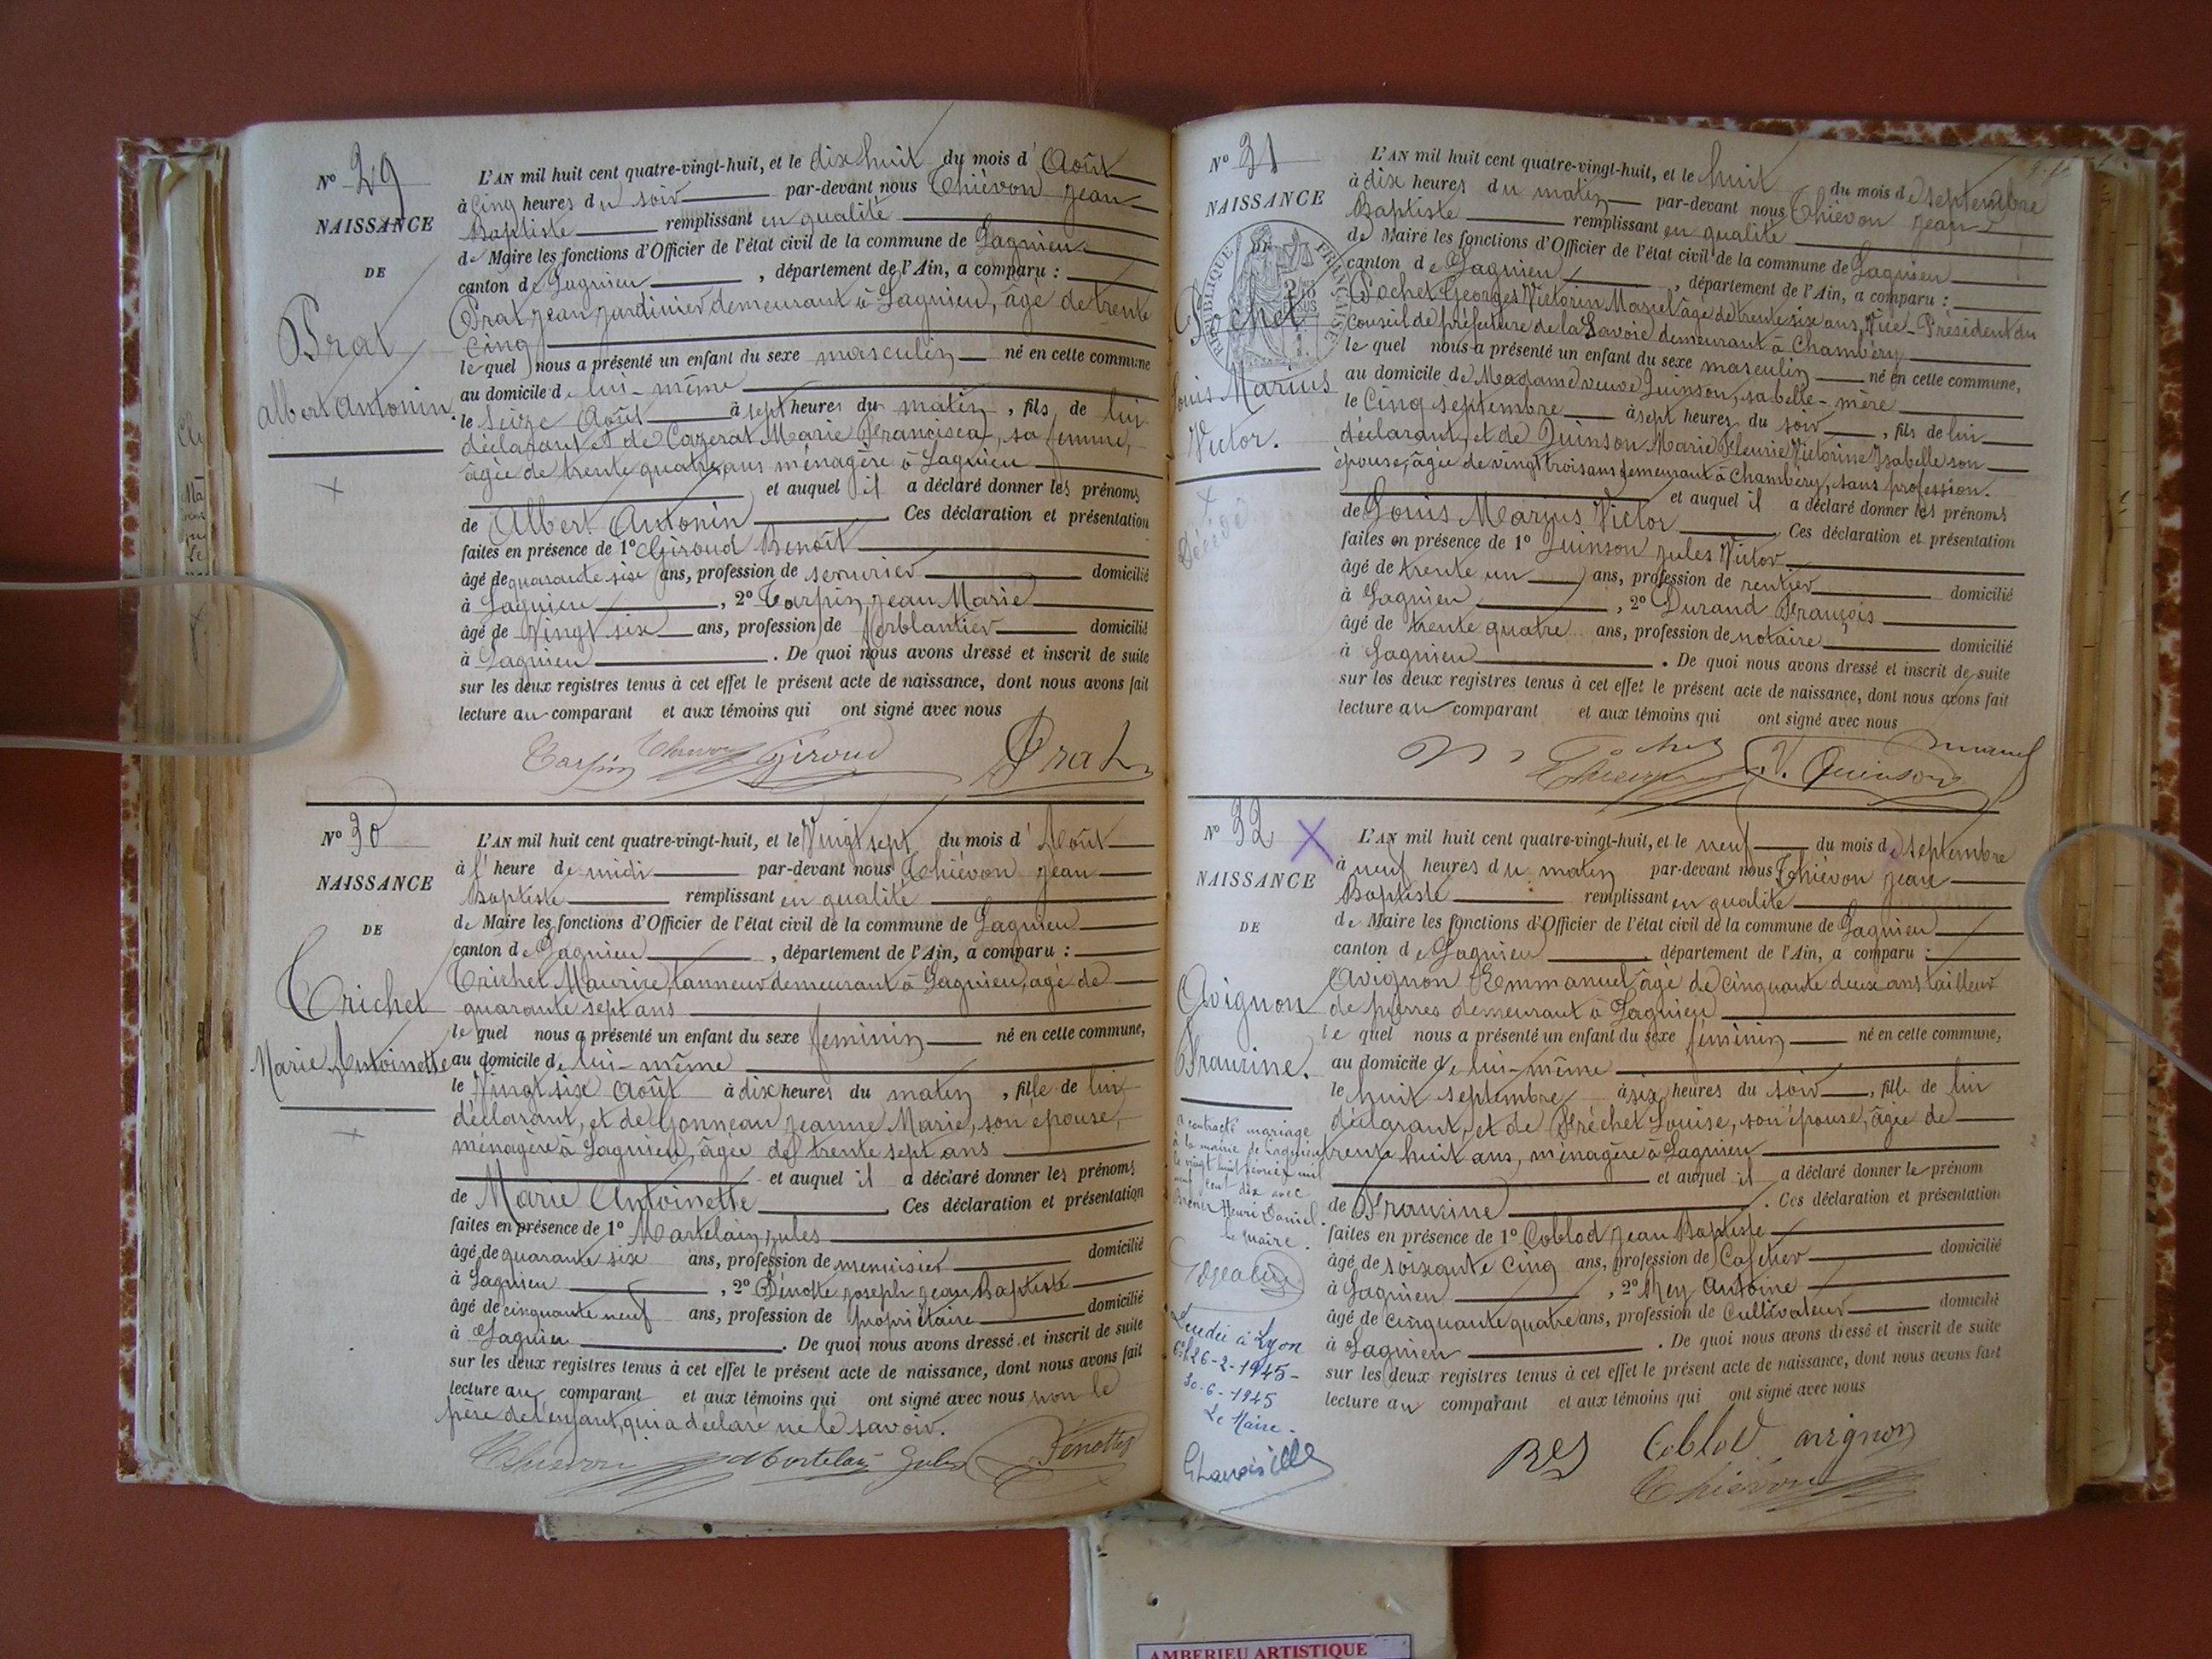 N° 29
NAISSANCE
DE
Prat
Albert Antonin.
L'AN mil huit cent quatre-vingt-huit, et le dix huit du mois d'Août
à cinq heures du soir par-devant nous Thiévon Jean
Baptiste remplissant en qualité
de Maire les fonctions d'Officier de l'état civil de la commune de Lagnieu
canton de Lagnieu, département de l'Ain, a comparu :
Prat Jean jardinier demeurant à Lagnieu, âgé de trente
cinq
lequel nous a présenté un enfant du sexe masculin né en cette commune
au domicile de lui-même
le seize Août à sept heures du matin, fils de lui
déclarant et de Cazerat Marie Francisca, sa femme,
âgée de trente quatre ans ménagère à Lagnieu
et auquel il a déclaré donner les prénoms
de Albert Antonin Ces déclaration et présentation
faites en présence de 1° Giroud Benoît
âgé de quarante six ans, profession de serrurier domicilié
à Lagnieu, 2° Tarpin Jean Marie
âgé de vingt six ans, profession de ferblantier domicilié
à Lagnieu. De quoi nous avons dressé et inscrit de suite
sur les deux registres tenus à cet effet le présent acte de naissance, dont nous avons fait
lecture au comparant et aux témoins qui ont signé avec nous
Tarpin Thiévon Giroud Prat
N° 30
NAISSANCE
DE
Trichet
Marie Antoinette
L'AN mil huit cent quatre-vingt-huit, et le Vingt sept du mois d'Août
à l'heure de midi par-devant nous Thiévon Jean
Baptiste remplissant en qualité
de Maire les fonctions d'Officier de l'état civil de la commune de Lagnieu
canton de Lagnieu, département de l'Ain, a comparu :
Trichet Maurize, tanneur demeurant à Lagnieu, agé de
quarante sept ans
lequel nous a présenté un enfant du sexe feminin né en cette commune,
au domicile de lui-même
le Vingt six Août à dix heures du matin, fille de lui
déclarant, et de Gonneau Jeanne Marie, son épouse,
ménagère à Lagnieu, âgée de trente sept ans
et auquel il a déclaré donner les prénoms
de Marie Antoinette Ces déclaration et présentation
faites en présence de 1° Martelain Jules
âgé de quarante six ans, profession de menuisier domicilié
à Lagnieu, 2° Penotte Joseph Jean Baptiste
âgé de cinquante neuf ans, profession de propriétaire domicilié
à Lagnieu. De quoi nous avons dressé et inscrit de suite
sur les deux registres tenus à cet effet le présent acte de naissance, dont nous avons fait
lecture au comparant et aux témoins qui ont signé avec nous non le
père de l'enfant, qui a déclaré ne le savoir.
Thiévon Martelain Jules Penotte
N° 31
NAISSANCE
DE
RÉPUBLIQUE FRANÇAISE
Pochet
Louis Marius
Victor.
Décédé
L'AN mil huit cent quatre-vingt-huit, et le huit du mois de septembre
à dix heures du matin par-devant nous Thiévon Jean
Baptiste remplissant en qualité
de Maire les fonctions d'Officier de l'état civil de la commune de Lagnieu
canton de Lagnieu, département de l'Ain, a comparu :
Pochet Georges Victorin Marcel âgé de trente six ans, Vice-Président du
Conseil de préfecture de la Savoie demeurant à Chambéry
lequel nous a présenté un enfant du sexe masculin né en cette commune,
au domicile de Madame veuve Quinson, sa belle-mère
le Cinq septembre à sept heures du soir, fils de lui
déclarant, et de Quinson Marie Fleurie Victorine Isabelle son
épouse, âgée de vingt trois ans demeurant à Chambéry, sans profession.
et auquel il a déclaré donner les prénoms
de Louis Marius Victor Ces déclaration et présentation
faites en présence de 1° Quinson Jules Victor
âgé de trente un ans, profession de rentier domicilié
à Lagnieu, 2° Durand François
âgé de trente quatre ans, profession de notaire domicilié
à Lagnieu. De quoi nous avons dressé et inscrit de suite
sur les deux registres tenus à cet effet le présent acte de naissance, dont nous avons fait
lecture au comparant et aux témoins qui ont signé avec nous
Pochet Thiévon J.V. Quinson Durand
N° 32
NAISSANCE
DE
Avignon
Francine.
A contracté mariage
à la mairie de Lagnieu
le vingt huit février mil
neuf cent dix avec
Henri Daniel.
Le Maire.
Décédée à Lyon
6e 26-2-1945-
30-6-1945
Le Maire.
L'AN mil huit cent quatre-vingt-huit, et le neuf du mois de septembre
à neuf heures du matin par-devant nous Thiévon Jean
Baptiste remplissant en qualité
de Maire les fonctions d'Officier de l'état civil de la commune de Lagnieu
canton de Lagnieu département de l'Ain, a comparu :
Avignon Emmanuel âgé de cinquante deux ans tailleur
de pierres demeurant à Lagnieu
lequel nous a présenté un enfant du sexe féminin né en cette commune,
au domicile de lui-même
le huit septembre à six heures du soir, fille de lui
déclarant, et de Fréchet Louise, son épouse, âgée de
trente huit ans, ménagère à Lagnieu
et auquel il a déclaré donner le prénom
de Francine. Ces déclaration et présentation
faites en présence de 1° Coblod Jean Baptiste
âgé de soixante cinq ans, profession de Cafetier domicilié
à Lagnieu, 2° Rey Antoine
âgé de cinquante quatre ans, profession de Cultivateur domicilié
à Lagnieu. De quoi nous avons dressé et inscrit de suite
sur les deux registres tenus à cet effet le présent acte de naissance, dont nous avons fait
lecture au comparant et aux témoins qui ont signé avec nous
Rey Coblod avignon
Thiévon
AMBERIEU ARTISTIQUE